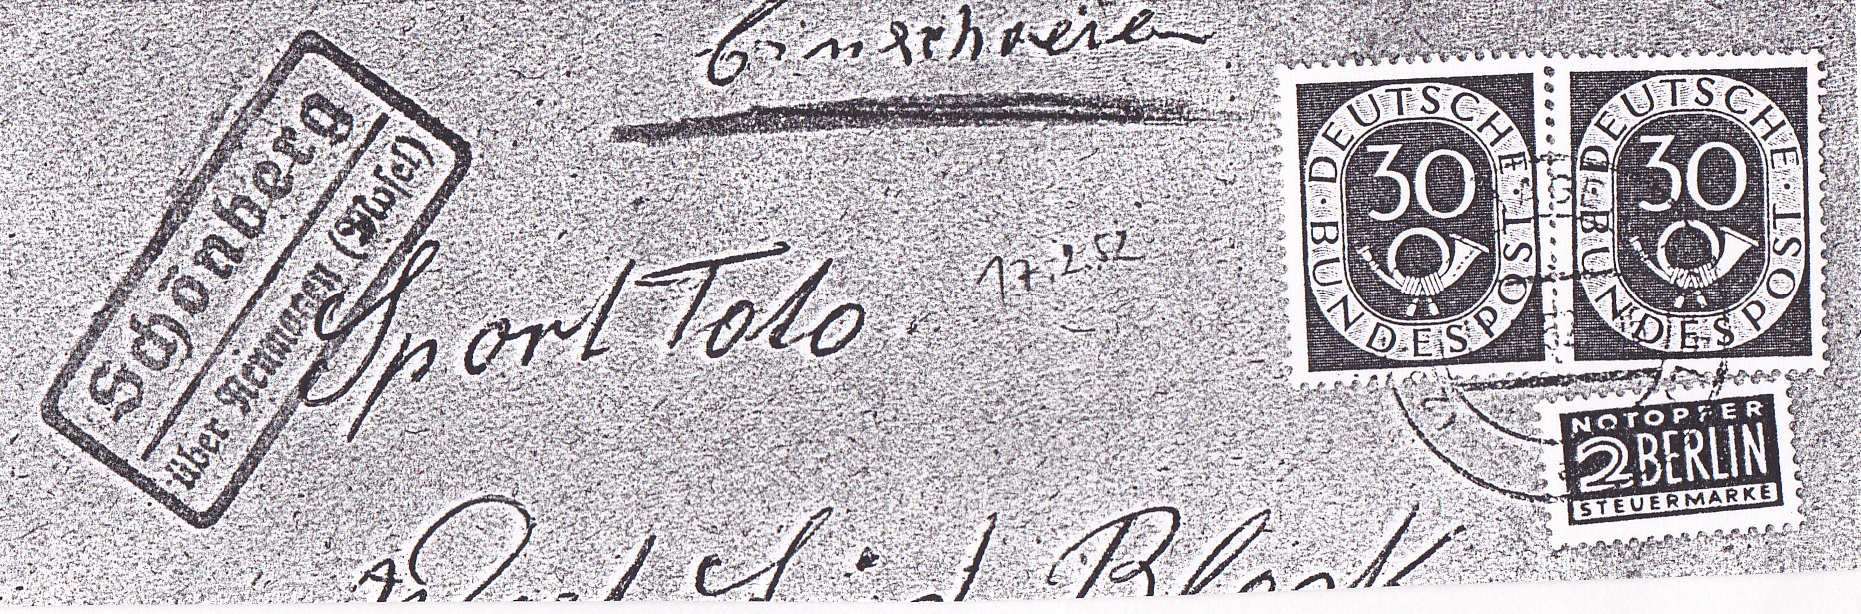 Einschreiben
Schönberg
über Neumagen (Mosel)
Sport Toto
17.2.52
DEUTSCHE · BUNDESPOST
30
DEUTSCHE · BUNDESPOST
30
NOTOPFER
2 BERLIN
STEUERMARKE